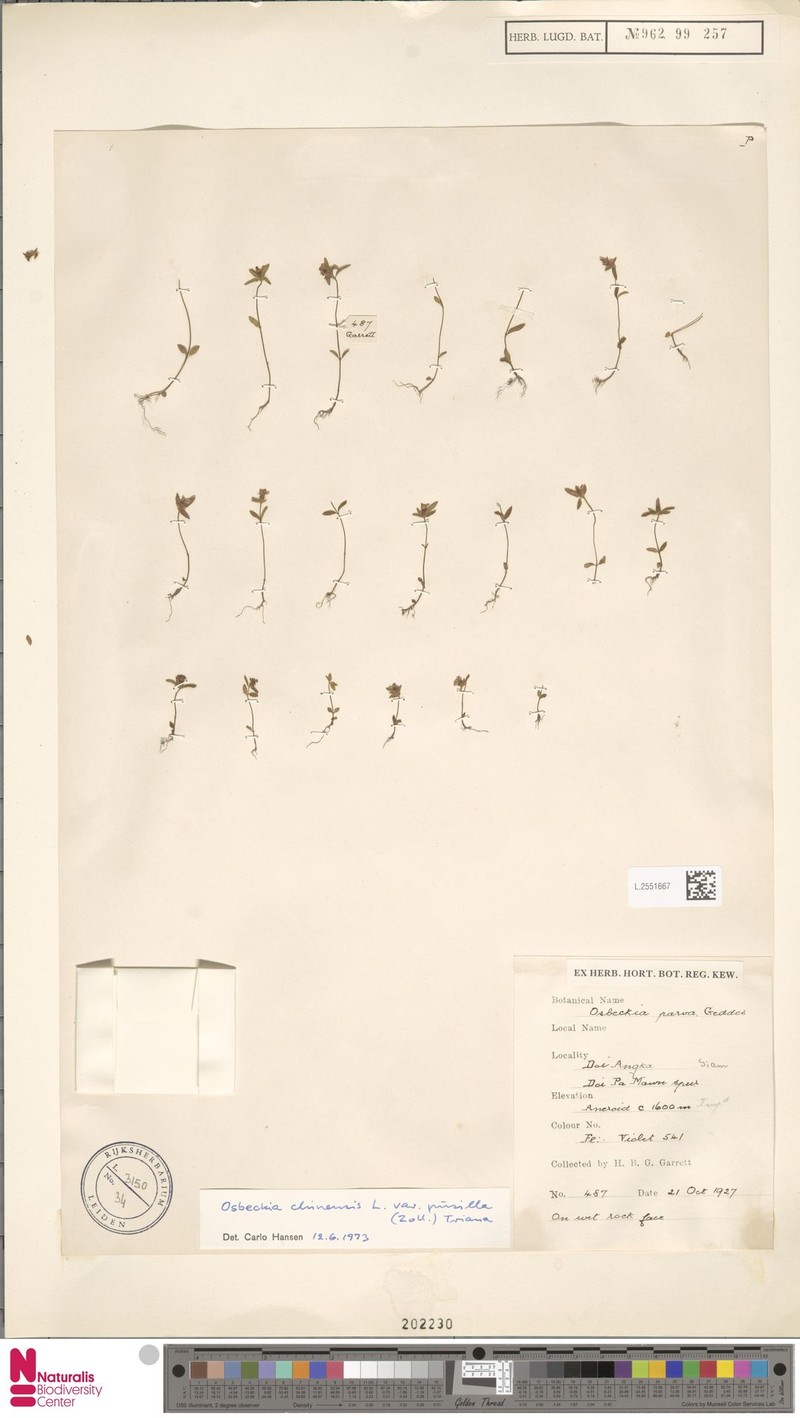 HERB. LUGD. BAT. № 962 99 257
P
487
Garrett
L.2551667
EX HERB. HORT. BOT. REG. KEW.
Botanical Name
Osbeckia parva, Geddes
Local Name
Locality
Doi Angka Siam
Doi Pa Mawn spur
Elevation
Aneroid c 1600 m
Colour No.
Fl: Violet 541
Collected by H. B. G. Garrett
No. 487 Date 21 Oct 1927
On wet rock face
RIJKSHERBARIUM
L.
No. 3150
34
LEIDEN
Osbeckia chinensis L. var. pusilla
(Zoll.) Triana
Det. Carlo Hansen 12.6.1973
202230
Naturalis
Biodiversity
Center
D50 Illuminant, 2 degree observer
Density
Golden Thread
Colors by Munsell Color Services Lab